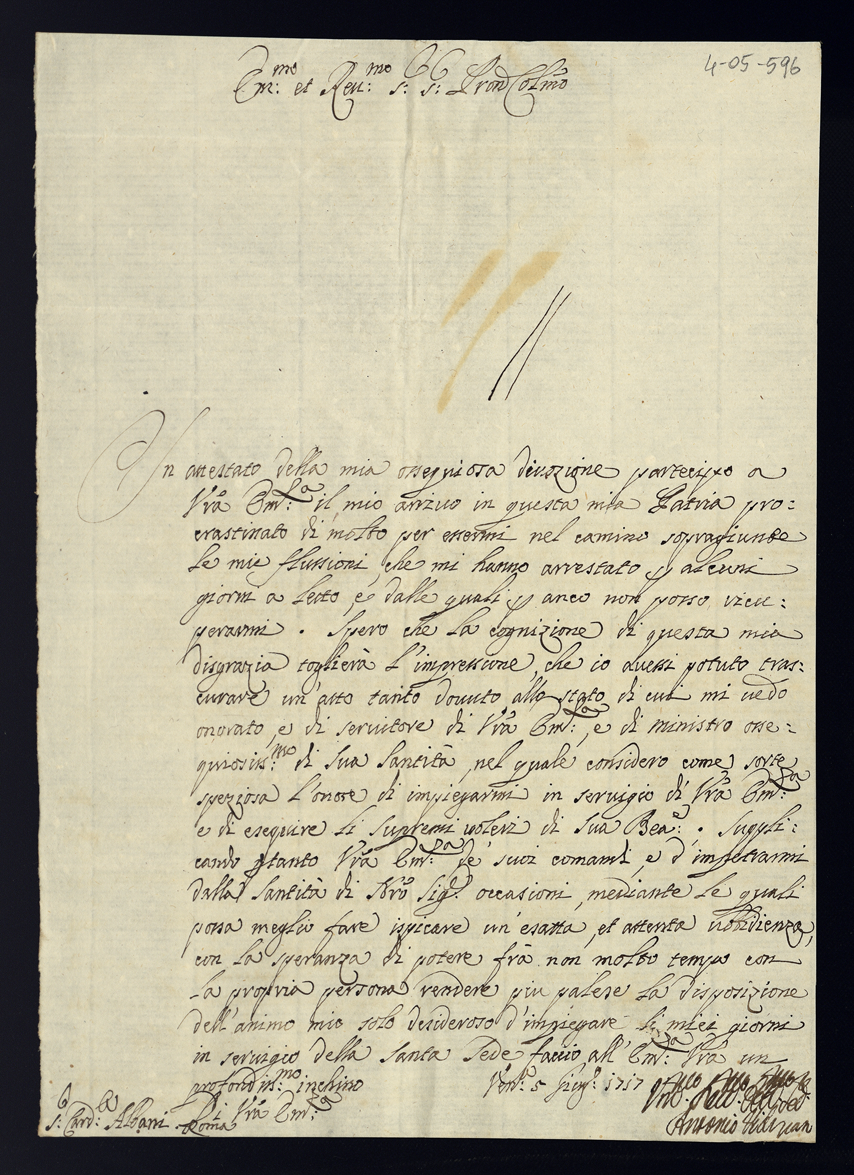 4-05-596
Em:mo et Reu:mo s: s: Pron Colmo
In attestato della mia ossequiosa diuozione partecipo a
Vrã Em:za il mio arriuo in questa mia Patria pro:
crastinato di molto per essermi nel camino sopragiunte
le mie flussioni che mi hanno arrestato p alcuni
giorni a letto, e dalle quali p anco non posso ricu:
perarmi. Spero che la cognizione di questa mia
disgrazia toglierà l'impressione, che io auessi potuto tras:
curare un'atto tanto douuto allo stato di cui mi uedo
onorato, e di seruitore di Vrã Em:za, e di ministro osse:
quiosiss:mo di Sua Santità, nel quale considero come sorte
speziosa l'onore di impiegarmi in seruigio di Vrã Em:za
e di eseguire li supremi uoleri di Sua Bea:e. Suppli:
cando ptanto Vrã Em:za de' suoi comandi, e d'impetrarmi
dalla Santità di Nrõ Sig:re occasioni, mediante le quali
possa meglio fare ispicare un'esatta, et attenta ubbidienza,
con la speranza di potere frà non molto tempo con
la propria persona rendere piu palese la disposizione
dell'animo mio solo desideroso d'impiegare li miei giorni
in seruigio della Santa Sede faccio all'Em:za Vrã un
profondiss:mo inchino
Di Vrã Em:za
Ven:a 5 Giug: 1717
s: Card:le Albani Roma
Antonio